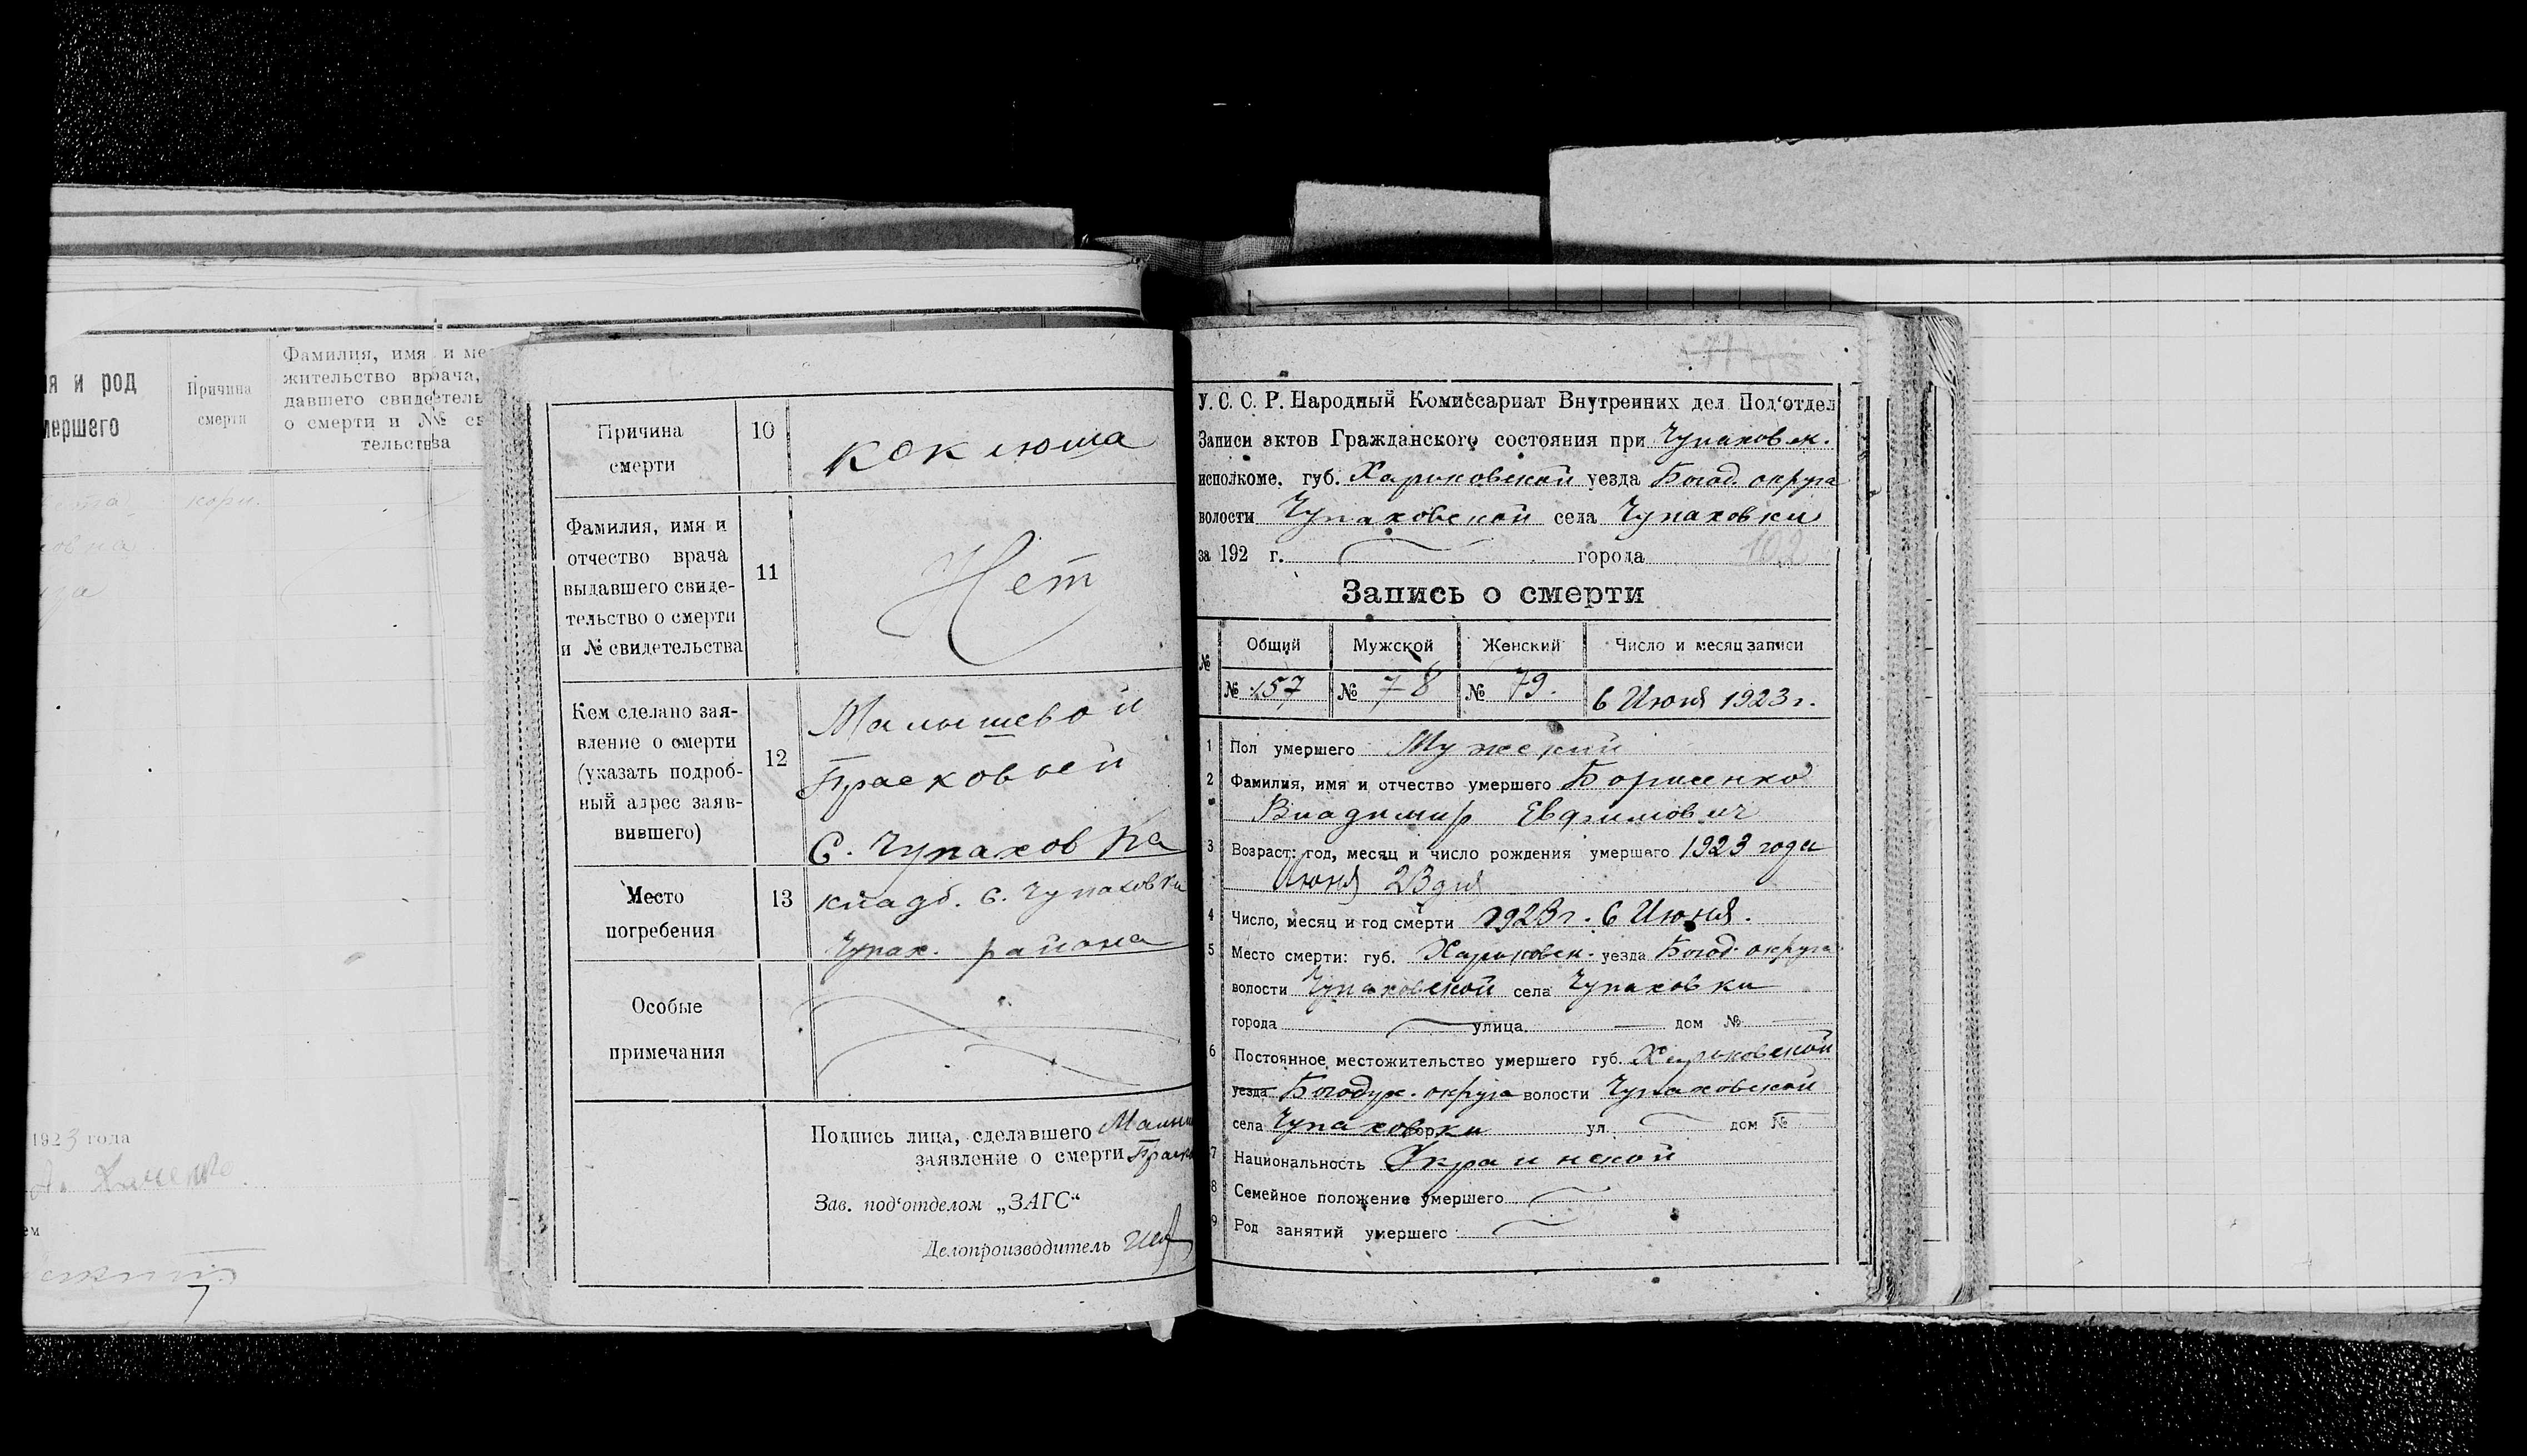 я и род
мершего
Причина
смерти
Фамилия, имя и ме
жительство врача,
давшего свидетель
о смерти и №№ св
тельства
кори.
1923 года
Причина
смерти
10
коклюша
Фамилия, имя и
отчество врача
выдавшего свиде-
тельство о смерти
и № свидетельства
11
Нет
Кем сделано зая-
вление о смерти
(указать подроб-
ный адрес заяв-
вившего)
12
Малышевой
Прасковьей
С. Чупаховка
Место
погребения
13
кладб. с. Чупаховки
Чупах. района
Особые
примечания
Подпись лица, сделавшего Малыш
заявление о смерти Праск
Зав. под'отделом „ЗАГС“
Делопроизводитель
У. С. С. Р. Народный Комиссариат Внутренних дел Под'отдел
Записи актов Гражданского состояния при Чупаховск.
исполкоме, губ. Харьковской уезда Богод. округа
волости Чупаховской села Чупаховки
за 192 г. города 102
Запись о смерти
№ Общий Мужской Женский Число и месяц записи
№ 157 № 78 № 79. 6 Июня 1923 г.
1 Пол умершего Мужский
2 Фамилия, имя и отчество умершего Борисенко
Владимир Евфимович
3 Возраст: год, месяц и число рождения умершего 1923 года
Июня 23 дня
4 Число, месяц и год смерти 1923 г. 6 Июня.
5 Место смерти: губ. Харьковск. уезда Богод. округа
волости Чупаховской села Чупаховки
города улица дом №
6 Постоянное местожительство умершего губ. Харьковской
уезда Богодух. округа волости Чупаховской
села Чупаховки гор. ул. дом №
7 Национальность Украинской
8 Семейное положение умершего
9 Род занятий умершего